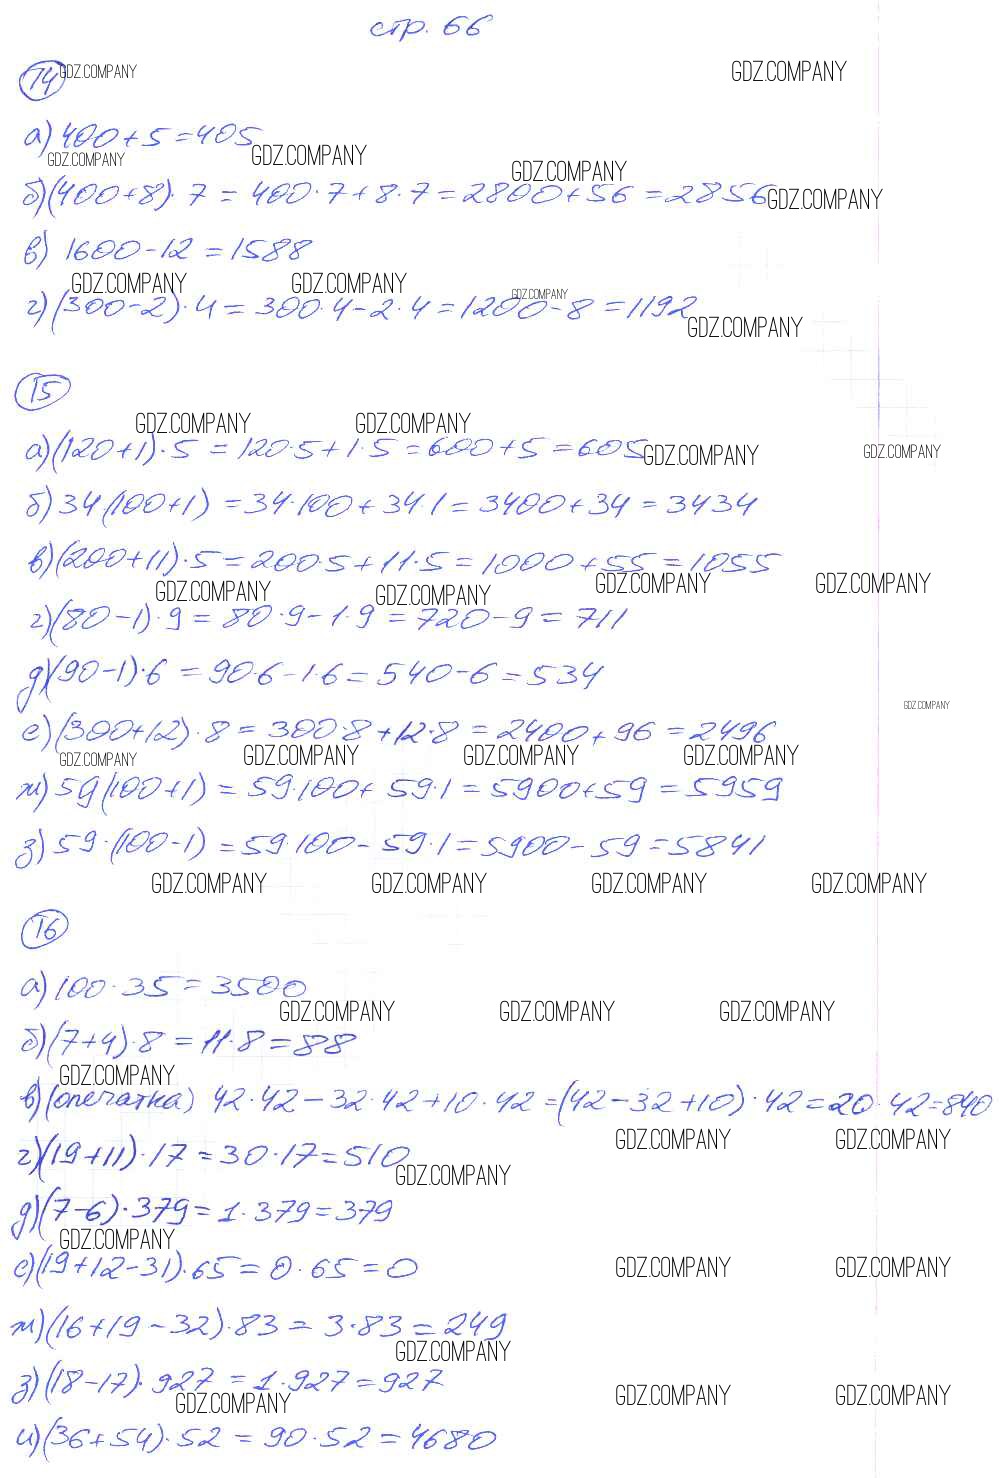 стр. 66
14 GDZ.COMPANY GDZ.COMPANY
а) 400+5=405
GDZ.COMPANY GDZ.COMPANY GDZ.COMPANY
б) (400+8)·7 = 400·7+8·7=2800+56=2856 GDZ.COMPANY
в) 1600-12=1588
GDZ.COMPANY GDZ.COMPANY GDZ.COMPANY
г) (300-2)·4=300·4-2·4=1200-8=1192
GDZ.COMPANY
15
GDZ.COMPANY GDZ.COMPANY
а) (120+1)·5 = 120·5+1·5=600+5=605 GDZ.COMPANY GDZ.COMPANY
б) 34(100+1) = 34·100+34·1=3400+34=3434
в) (200+11)·5=200·5+11·5=1000+55=1055
GDZ.COMPANY GDZ.COMPANY GDZ.COMPANY GDZ.COMPANY
г) (80-1)·9=80·9-1·9=720-9=711
д) (90-1)·6=90·6-1·6=540-6=534
GDZ.COMPANY
е) (300+12)·8=300·8+12·8=2400+96=2496
GDZ.COMPANY GDZ.COMPANY GDZ.COMPANY GDZ.COMPANY
ж) 59(100+1) = 59·100+59·1=5900+59=5959
з) 59·(100-1)=59·100-59·1=5900-59=5841
GDZ.COMPANY GDZ.COMPANY GDZ.COMPANY GDZ.COMPANY
16
а) 100·35=3500
GDZ.COMPANY GDZ.COMPANY GDZ.COMPANY
б) (7+4)·8=11·8=88
GDZ.COMPANY
в) (опечатка) 42·42-32·42+10·42=(42-32+10)·42=20·42=840
GDZ.COMPANY GDZ.COMPANY
г) (19+11)·17=30·17=510
GDZ.COMPANY
д) (7-6)·379=1·379=379
GDZ.COMPANY
е) (19+12-31)·65=0·65=0 GDZ.COMPANY GDZ.COMPANY
ж) (16+19-32)·83=3·83=249
GDZ.COMPANY
з) (18-17)·927=1·927=927
GDZ.COMPANY GDZ.COMPANY GDZ.COMPANY
и) (36+54)·52=90·52=4680